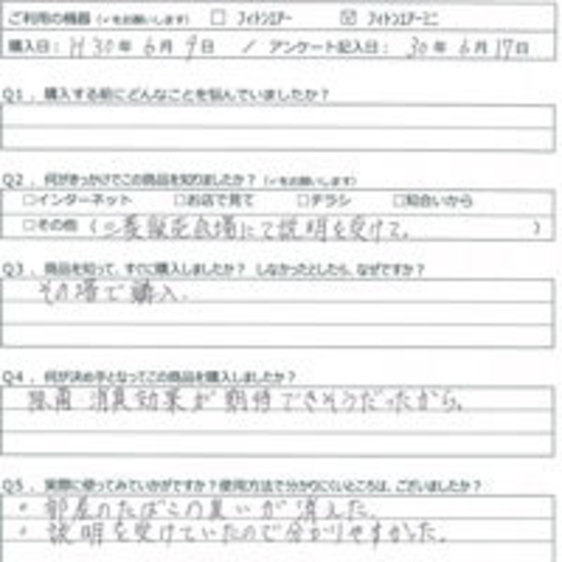 ご利用の機器(✓をお願いします) □ フィトンエアー ☑ フィトンエアーミニ
購入日: H30年 6月 9日 / アンケート記入日: 30年 6月 17日
Q1. 購入する前にどんなことを悩んでいましたか?
Q2. 何がきっかけでこの商品を知りましたか?(✓をお願いします)
□インターネット □お店で見て □チラシ □知合いから
□その他 (三菱販売会場にて説明を受けて。 )
Q3. 商品を知って、すぐに購入しましたか? しなかったとしたら、なぜですか?
その場で購入.
Q4. 何が決め手となってこの商品を購入しましたか?
除菌 消臭効果が期待できそうだったから。
Q5. 実際に使ってみていかがですか?使用方法で分かりにくいところは、ございましたか?
・部屋のたばこの臭いが消えた.
・説明を受けていたので分かりやすかった.